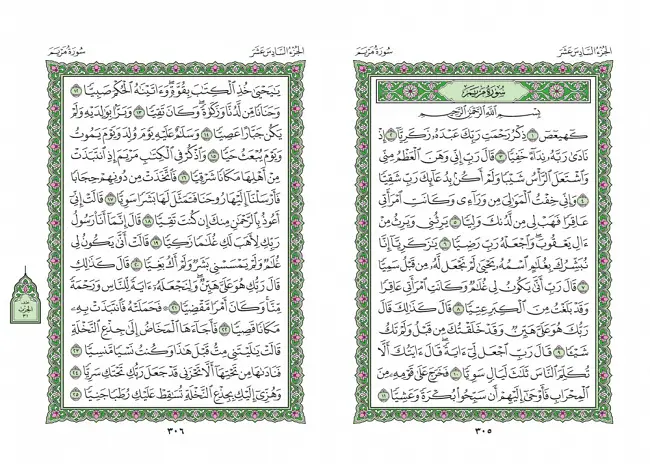 الجزء السادس عشر
سورة مريم
سُورَةُ مَرْيَمَ
بِسْمِ اللَّهِ الرَّحْمَٰنِ الرَّحِيمِ
كٓهيعٓصٓ ١ ذِكْرُ رَحْمَتِ رَبِّكَ عَبْدَهُۥ زَكَرِيَّآ ٢ إِذْ
نَادَىٰ رَبَّهُۥ نِدَآءً خَفِيًّا ٣ قَالَ رَبِّ إِنِّي وَهَنَ ٱلْعَظْمُ مِنِّي
وَٱشْتَعَلَ ٱلرَّأْسُ شَيْبًا وَلَمْ أَكُنۢ بِدُعَآئِكَ رَبِّ شَقِيًّا
٤ وَإِنِّي خِفْتُ ٱلْمَوَٰلِيَ مِن وَرَآءِي وَكَانَتِ ٱمْرَأَتِي
عَاقِرًا فَهَبْ لِي مِن لَّدُنكَ وَلِيًّا ٥ يَرِثُنِي وَيَرِثُ مِنْ
ءَالِ يَعْقُوبَ وَٱجْعَلْهُ رَبِّ رَضِيًّا ٦ يَٰزَكَرِيَّآ إِنَّا
نُبَشِّرُكَ بِغُلَٰمٍ ٱسْمُهُۥ يَحْيَىٰ لَمْ نَجْعَل لَّهُۥ مِن قَبْلُ سَمِيًّا
٧ قَالَ رَبِّ أَنَّىٰ يَكُونُ لِي غُلَٰمٌ وَكَانَتِ ٱمْرَأَتِي عَاقِرًا
وَقَدْ بَلَغْتُ مِنَ ٱلْكِبَرِ عِتِيًّا ٨ قَالَ كَذَٰلِكَ قَالَ
رَبُّكَ هُوَ عَلَيَّ هَيِّنٌ وَقَدْ خَلَقْتُكَ مِن قَبْلُ وَلَمْ تَكُ
شَيْـًٔا ٩ قَالَ رَبِّ ٱجْعَل لِّيٓ ءَايَةً قَالَ ءَايَتُكَ أَلَّا
تُكَلِّمَ ٱلنَّاسَ ثَلَٰثَ لَيَالٍ سَوِيًّا ١٠ فَخَرَجَ عَلَىٰ قَوْمِهِۦ مِنَ
ٱلْمِحْرَابِ فَأَوْحَىٰٓ إِلَيْهِمْ أَن سَبِّحُوا۟ بُكْرَةً وَعَشِيًّا ١١
٣٠٥
الجزء السادس عشر
سورة مريم
يَٰيَحْيَىٰ خُذِ ٱلْكِتَٰبَ بِقُوَّةٍ وَءَاتَيْنَٰهُ ٱلْحُكْمَ صَبِيًّا ١٢
وَحَنَانًا مِّن لَّدُنَّا وَزَكَوٰةً وَكَانَ تَقِيًّا ١٣ وَبَرًّۢا بِوَٰلِدَيْهِ وَلَمْ
يَكُن جَبَّارًا عَصِيًّا ١٤ وَسَلَٰمٌ عَلَيْهِ يَوْمَ وُلِدَ وَيَوْمَ يَمُوتُ
وَيَوْمَ يُبْعَثُ حَيًّا ١٥ وَٱذْكُرْ فِي ٱلْكِتَٰبِ مَرْيَمَ إِذِ ٱنتَبَذَتْ
مِنْ أَهْلِهَا مَكَانًا شَرْقِيًّا ١٦ فَٱتَّخَذَتْ مِن دُونِهِمْ حِجَابًا
فَأَرْسَلْنَآ إِلَيْهَا رُوحَنَا فَتَمَثَّلَ لَهَا بَشَرًا سَوِيًّا ١٧ قَالَتْ إِنِّيٓ
أَعُوذُ بِٱلرَّحْمَٰنِ مِنكَ إِن كُنتَ تَقِيًّا ١٨ قَالَ إِنَّمَآ أَنَا۠ رَسُولُ
رَبِّكِ لِأَهَبَ لَكِ غُلَٰمًا زَكِيًّا ١٩ قَالَتْ أَنَّىٰ يَكُونُ لِي
غُلَٰمٌ وَلَمْ يَمْسَسْنِي بَشَرٌ وَلَمْ أَكُ بَغِيًّا ٢٠ قَالَ كَذَٰلِكِ
قَالَ رَبُّكِ هُوَ عَلَيَّ هَيِّنٌ وَلِنَجْعَلَهُۥٓ ءَايَةً لِّلنَّاسِ وَرَحْمَةً
مِّنَّا وَكَانَ أَمْرًا مَّقْضِيًّا ٢١ ۞ فَحَمَلَتْهُ فَٱنتَبَذَتْ بِهِۦ
مَكَانًا قَصِيًّا ٢٢ فَأَجَآءَهَا ٱلْمَخَاضُ إِلَىٰ جِذْعِ ٱلنَّخْلَةِ
قَالَتْ يَٰلَيْتَنِي مِتُّ قَبْلَ هَٰذَا وَكُنتُ نَسْيًا مَّنسِيًّا ٢٣
فَنَادَىٰهَا مِن تَحْتِهَآ أَلَّا تَحْزَنِي قَدْ جَعَلَ رَبُّكِ تَحْتَكِ سَرِيًّا ٢٤
وَهُزِّيٓ إِلَيْكِ بِجِذْعِ ٱلنَّخْلَةِ تُسَٰقِطْ عَلَيْكِ رُطَبًا جَنِيًّا ٢٥
٣٠٦